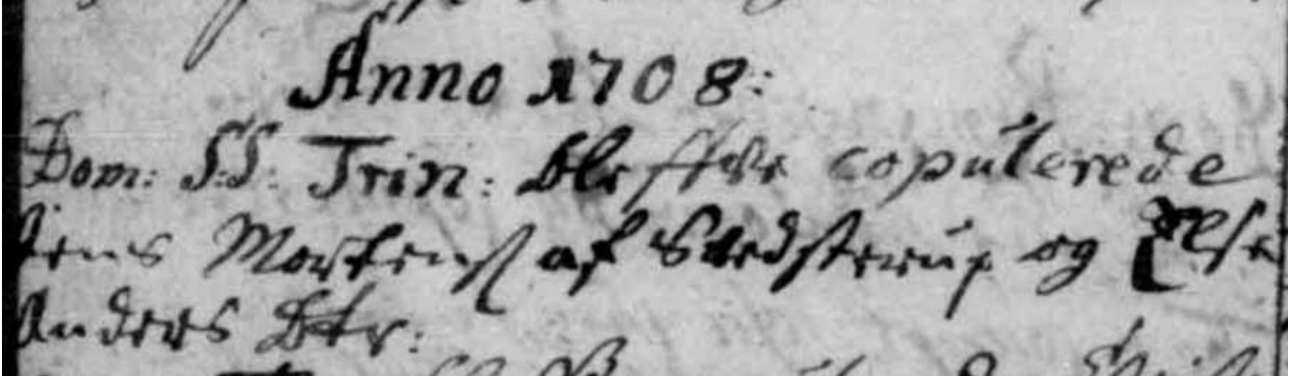 Anno 1708:
Dom: SS. Trin: bleffve copulerede
Jens Mortensß af Stedsterup og Else
Anders Dtr: